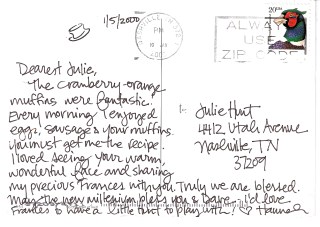 1/5/2000
PM
ALWAYS
USE
ZIP CODE
20
Dearest Julie,
The cranberry-orange
muffins were fantastic.
Every morning I enjoyed
eggs, sausage & your muffins.
You must get me the recipe.
I loved seeing your warm,
wonderful face and sharing
my precious Frances with you. Truly we are blessed.
May the new millenium bless you & Dave. I'd love
Frances to have a little Hunt to play with! ♡ Hannah
to:
Julie Hunt
4412 Utah Avenue
Nashville, TN
37209